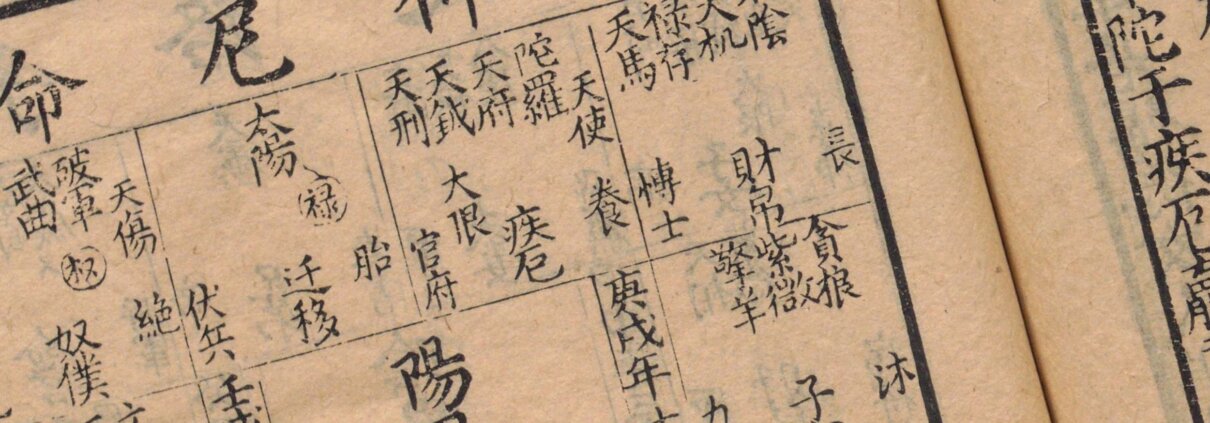 命
太陰
天机
禄存
天馬
長
財帛
愽士
天使
陀羅
天府
天鉞
天刑
養
疾厄
大限
官府
太陽
禄
胎
迁移
伏兵
破軍
武曲
权
天傷
絶
奴僕
貪狼
紫微
擎羊
沐
子
庚戌年
陽
壬
陀于疾厄